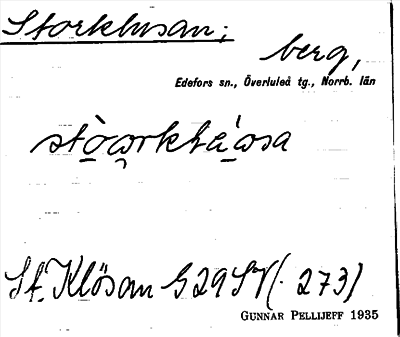 Storklusan;
berg,
Edefors sn., Överluleå tg., Norrb. län
St. Klösan G 29 SV (. 273)
GUNNAR PELLIJEFF 1935